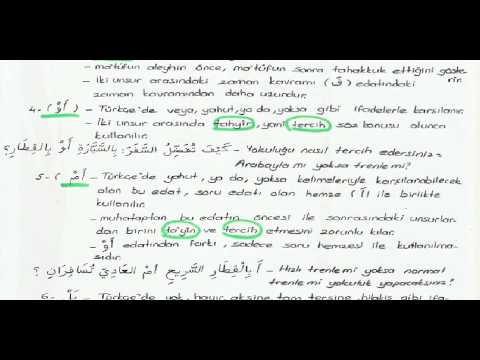 - ma'tûfun aleyhin önce, ma'tûfun sonra tahakkuk ettiğini göste
rir.
- iki unsur arasındaki zaman kavramı (فَ) edatındaki
zaman kavramından daha uzundur.
4- (أَوْ) - Türkçe'de veya, yahut, ya da, yoksa gibi ifadelerle karşılanır.
- iki unsur arasında tahyîr, yani tercih söz konusu olunca
kullanılır.
- كَيْفَ تُفَضِّلُ السَّفَرَ: بِالسَّيَّارَةِ أَوْ بِالْقِطَارِ؟ - Yolculuğu nasıl tercih edersiniz:
Arabayla mı yoksa trenle mi?
5- (أَمْ) - Türkçe'de yahut, ya da, yoksa kelimeleriyle karşılanabilecek
olan bu edat, soru edatı olan hemze (أ) ile birlikte
kullanılır.
- muhataptan bu edatın öncesi ile sonrasındaki unsurlar-
dan birini ta'yîn ve tercih etmesini zorunlu kılar.
- أَوْ edatından farkı, sadece soru hemzesi ile kullanılma-
sıdır.
- أَبِالْقِطَارِ السَّرِيعِ أَمْ الْعَادِيِّ تُسَافِرَانِ؟ - Hızlı trenle mi yoksa normal
trenle mi yolculuk yapacaksınız?
6- (بَلْ) - Türkçe'de yok, hayır, aksine, tam tersine, bilakis gibi ifa-